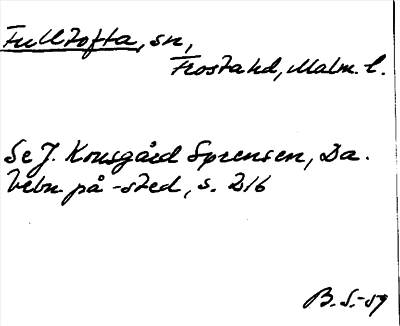 Fulltofta, sn,
Frosta hd, Malm. l.
Se J. Kousgård Sørensen, Da.
bebn på -sted, s. 216
B. S.-59